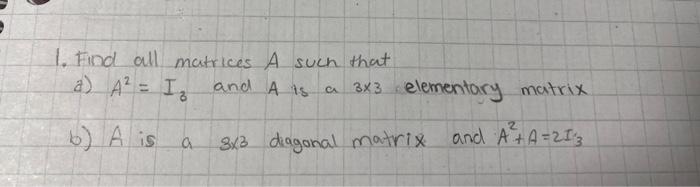 1. Find all matrices A such that
a) A² = I₃ and A is a 3x3 elementary matrix
b) A is a 3x3 diagonal matrix and A²+A=2I₃